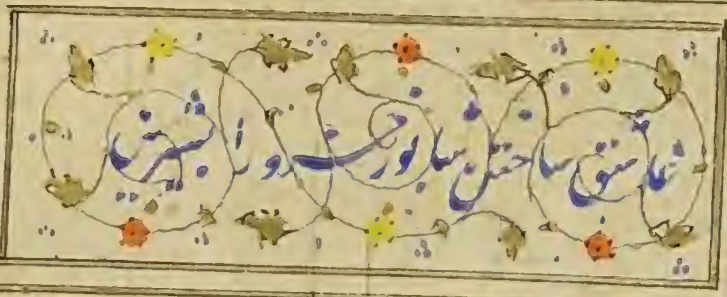 عاشق ساختن شاپور خسرو را بشیرین